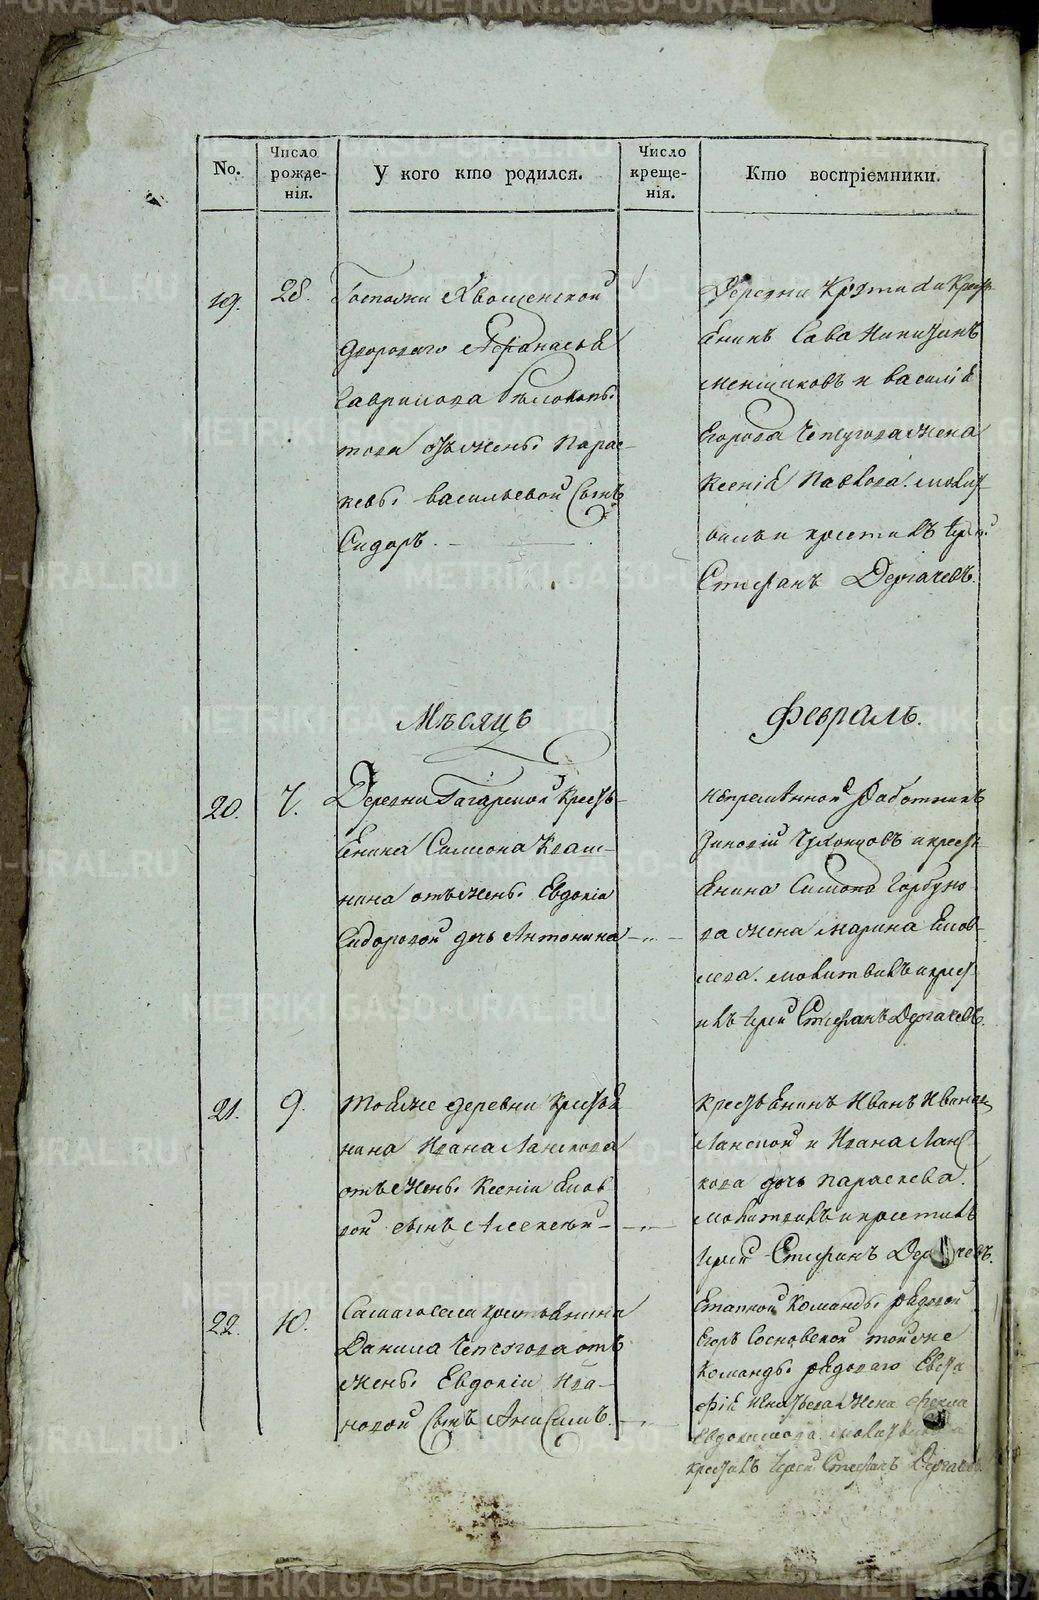 No.
Число рожденія.
У кого кто родился.
Число крещенія.
Кто воспріемники.
19.
28.
Госпожи Хвощенской
дворового Афанасья
Гаврилова
отъ жены Парас-
кевы Васильевой сынъ
Сидоръ.
Деревни
Енинъ Сава
Меншиковъ и Василія
Егорова Чепчугова жена
Ксенія Павлова. молит
валъ и крестилъ Іерей
Стефанъ Дергачевъ.
Мѣсяцъ
Февраль.
20.
7.
Деревни Гагарской кресть-
Енина Симиона
нина отъ жены Евдокіи
Сидоровой дочь Антонина
непремѣнной работникъ
Зиновій и кресть
Енина Симиона Горбуно
ва жена Марина
молитвилъ и крест
илъ Іерей Стефанъ Дергачевъ.
21.
9.
тоя же деревни кресть
нина Ивана Ланскова
отъ жены Ксеніи
вой сынъ Алексѣй
крестьЕнинъ Иванъ Ивановъ
Ланской и Ивана Ланс
кова дочь Параскева.
Молитвилъ и крестилъ
Іерей Стефанъ Дергачевъ.
22.
10.
Самаго села крестьЕнина
Данила Чепчугова отъ
жены Евдокіи Ива-
новой сынъ Анисимъ.
Етапной команды рЕдовой
Егоръ Сосновской той же
команды рЕдоваго Евста
фій жена Фекла
Евдокимова.
крестилъ Іерей Стефанъ Дергачевъ.
METRIKI.GASO-URAL.RU